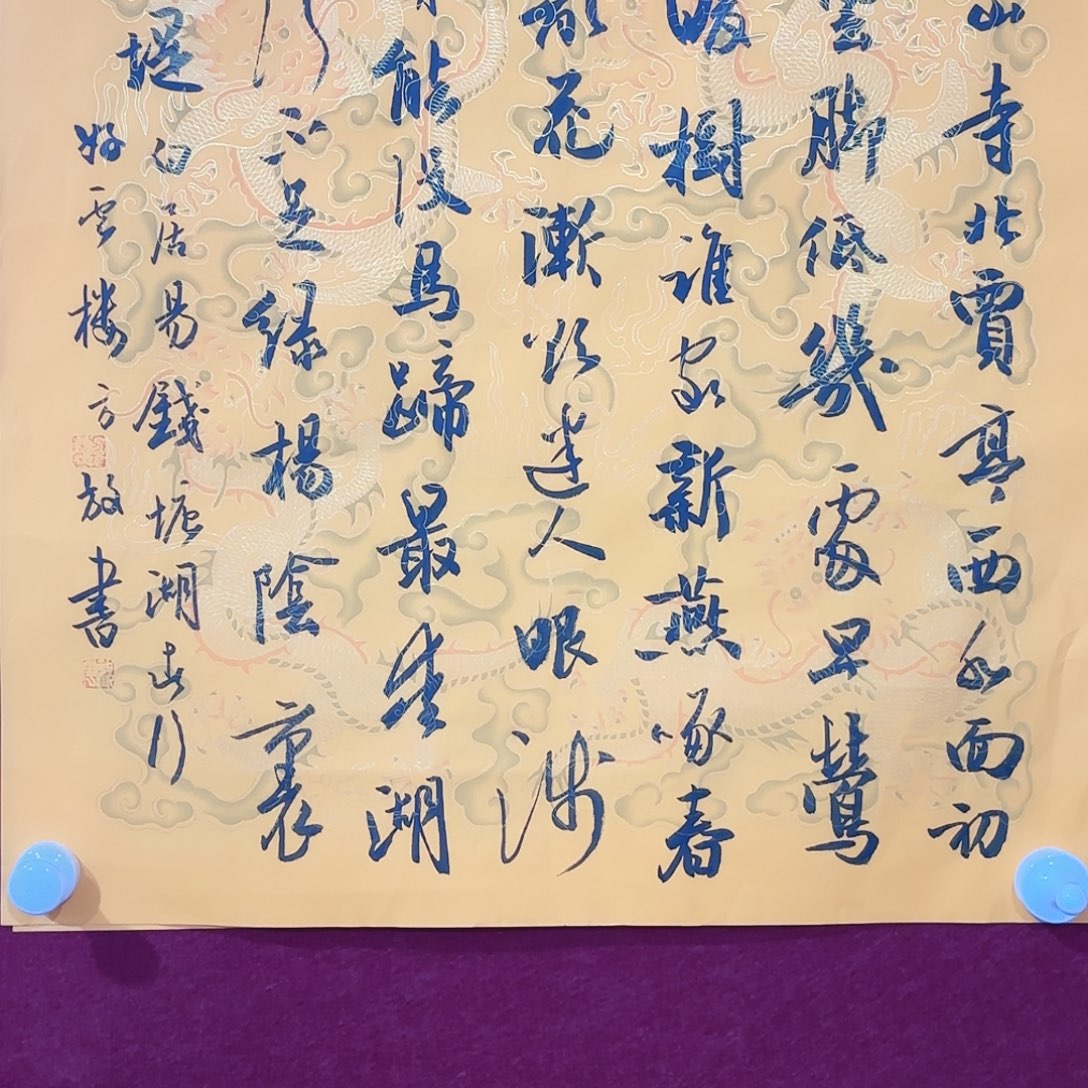 山寺北賈亭西水面初
雲脚低幾處早鶯
暖樹誰家新燕啄春
亂花漸欲迷人眼淺
能沒馬蹄最愛湖
行不足綠楊陰裏
堤 白居易錢塘湖春行
好雲楼方放書